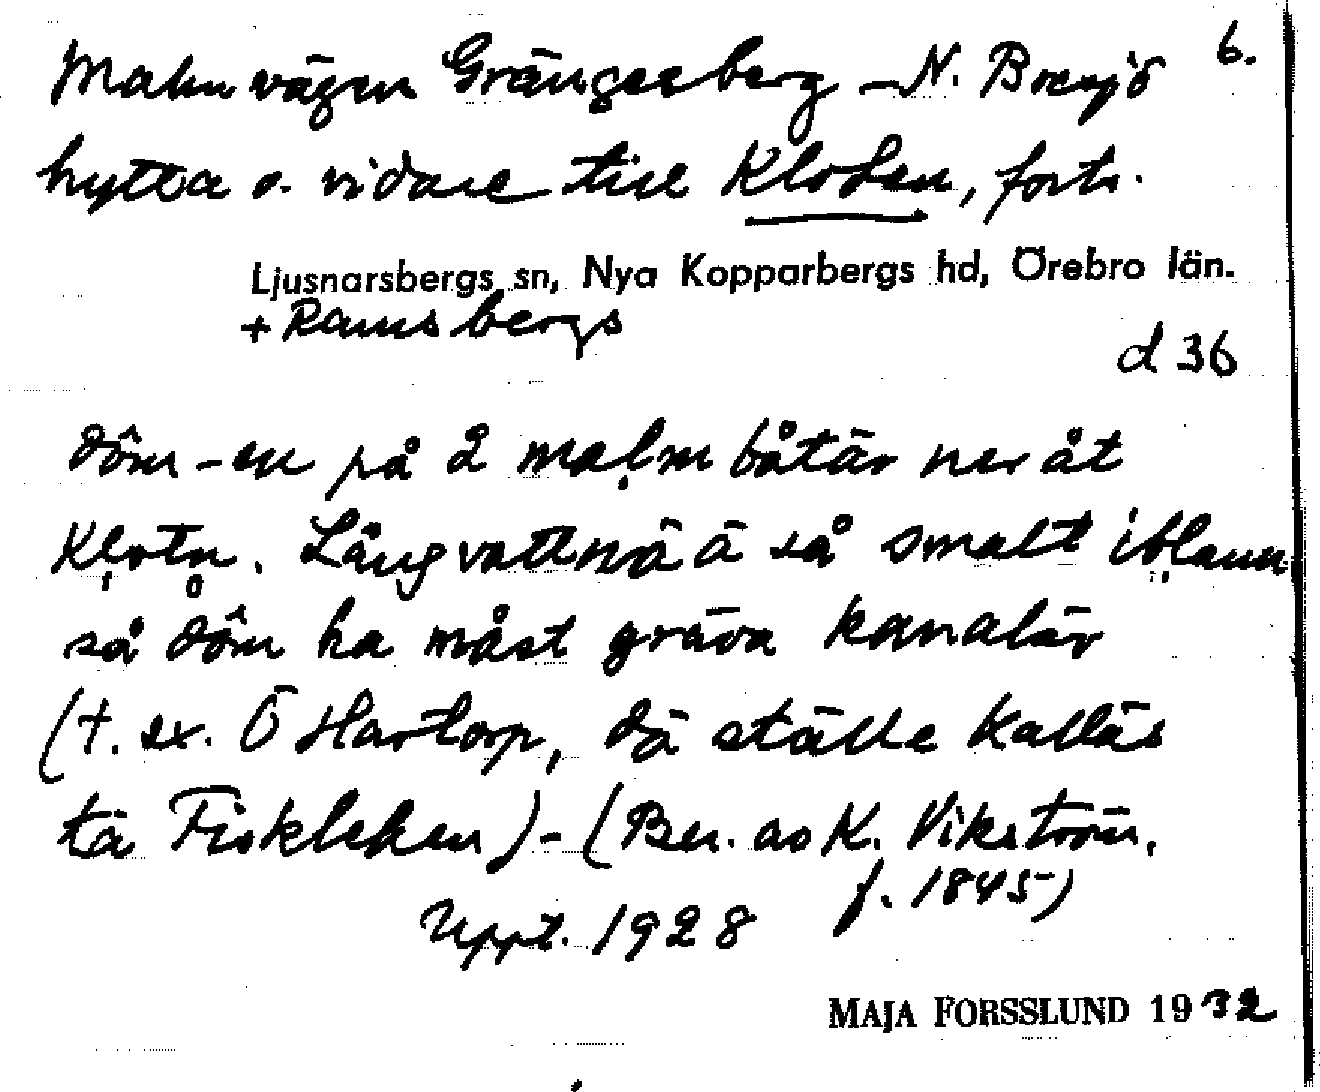 Malmvägen Grängesberg – N. Borsjö 6.
hytta o. vidare till Kloten, forts.
Ljusnarsbergs sn, Nya Kopparbergs hd, Örebro län.
+ Ramsbergs
d 36
dôm-en på å malmbåtär neråt
Klotn. Långvattnä ä så smalt iblann
så dôm ha måst gräva kanalär
(t. ex. Ö Hartorp, dä ställe kalläs
tä Fiskleken) - (Ber. av K. Vikström,
f. 1845)
Uppt. 1928
MAJA FORSSLUND 1932